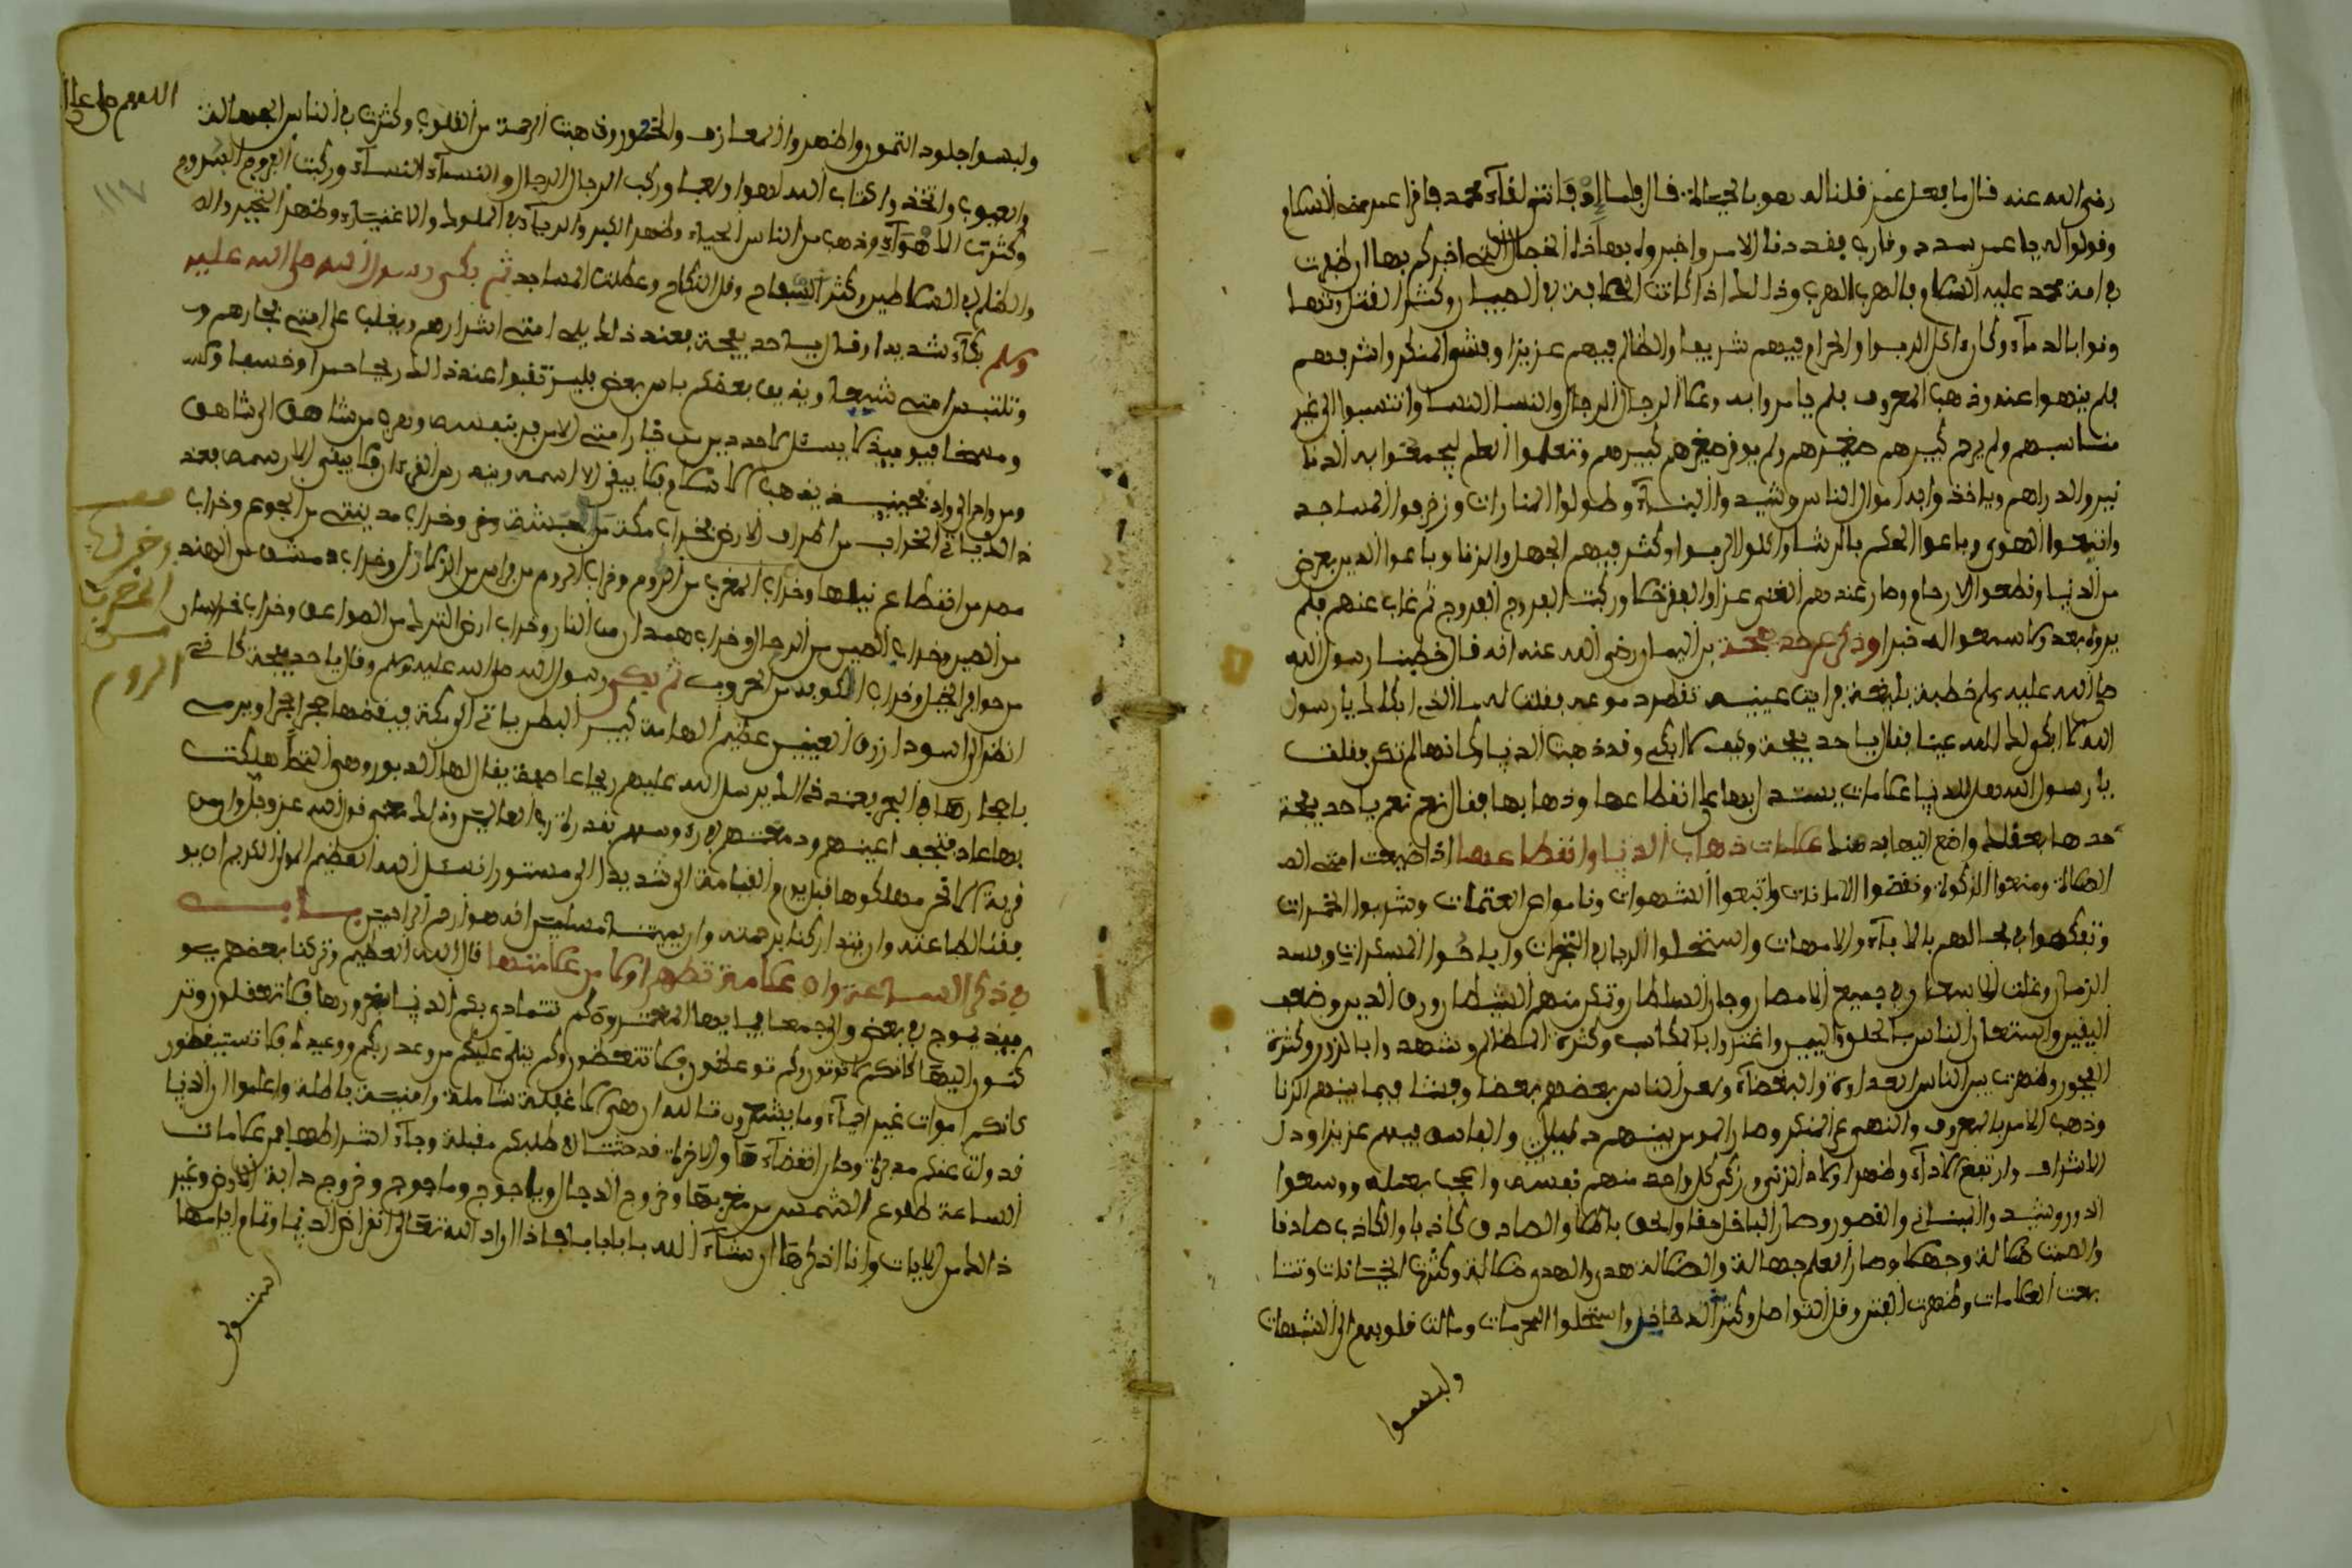 رضي الله عنه قال ما فعل عمر قلنا له هو بالحياة قال فلما إذ فاتني لقاء محمد فاقرا عمر مني السلام
وقولوا له يا عمر سدد وقارب فقد دنا الامر واخبروه بهاذه الخصال التي اخبركم بها ان ظهرت
في امة محمد عليه السلام فالهرب الهرب وذالك اذا كانت الخطابة في الصبيان وكثر الفتن وتها
ونوا بالدماء وكان اكل الربوا والحرام فيهم شريفا والظالم فيهم عزيزا وفشو المنكر واشر فيهم
فلم ينهوا عنه وذهب المعروف فلم يامروا به وعلا الرجال الرجال والنسا النسا وانتسبوا الى غير
مناسبهم ولم يرحم كبيرهم صغيرهم ولم يوقر صغيرهم كبيرهم وتعلموا العلم ليجمعوا به الدنا
نير والدراهم وياخذوا به اموال الناس وشيدوا البناء وطولوا المنارات وزخرفوا المساجد
واتبعوا الهوى وباعوا الحكم بالرشا واكلوا الربوا وكثر فيهم الجهل والزنا وباعوا الدين بعرض
من الدنيا وقطعوا الارحام وصار عندهم الغنى عزا والفقر ذلا وركبت الفروج الفروج ثم غاب عنهم فلم
يروه بعد ولا سمعوا له خبرا وذكر عن حذيفة بن اليمان رضي الله عنه انه قال خطبنا رسول الله
صلى الله عليه وسلم خطبة بليغة فرايت عينيه تقطر دموعه فقلت له ما الذي ابكاك يا رسول
الله لا ابكى لك الله عينا فقال يا حذيفة وكيف لا ابكي وقد ذهبت الدنيا وكانها لم تكن فقلت
يا رسول الله هل للدنيا علامات يستدل بها على انقطاعها وذهابها فقال نعم نعم يا حذيفة
عدها بعقلك واضع اليها بذهنك علامات ذهاب الدنيا وانقطاعها اذا ضيعت امتي الصـ
الصلاة ومنعوا الزكوة ونقضوا الامانات واتبعوا الشهوات وناموا عن العتمات وشربوا الخمرات
وتفكهوا في مجالسهم بالاباء والامهات واستحلوا الربا في التجرات واباحوا المسكرات وفسد
الزمان وغلت الاسعار في جميع الامصار وجار السلطان وتكبر منهم الشيطان ورق الدين وضعف
اليقين واستعان الناس بالحلف واليمين واغتروا بالمكاسب وكثرة المظالم وشهدوا بالزور وكثرة
الفجور وظهرت بين الناس العداوة والبغضاء ولعن الناس بعضهم بعضا وفشا فيما بينهم الزنا
وذهب الامر بالمعروف والنهي عن المنكر وصار المومن بينهم ذليلا والفاسق فيهم عزيزا وذل
الاشراف وارتفع الادناء وظهر اولاد الزنى وزكى كل واحد منهم نفسه واعجب بعمله ووسعوا
الدور وشيدوا البنيان والقصور وصار الباطل حقا والحق باطلا والصادق كاذبا والكاذب صادقا
والصمت ضلالة وجهلا وصار العلم جهالة والضلالة هدى والهدى ضلالة وكثرت الخيانات وتتا
بعت العلامات وظهرت الفتن وقل التواصل وكثر التداخل واستحلوا المحرمات ومالت قلوبهم الى الشبهات
ولبسوا
اللهم صل على
ولبسوا جلود النمور واظهروا المعازف والخمور وذهبت الرحمة من القلوب وكثرت في الناس الجهالة
والعيوب واتخذوا كتاب الله لهوا ولعبا وركب الرجال الرجال والنساء النساء وركبت الفروج السروج
وكثرت الاهواء وذهب من الناس الحياء وظهر الكبر والرياء في الملوك والاغنياء وظهر الفجير والـ
والظلم في السلاطين وكثر السفاح وقل النكاح وعطلت المساجد ثم بكى رسول الله صلى الله عليه
وسلم بكاء شديدا وقال يا حذيفة فعند ذالك يلي امتي اشرارهم ويغلب على امتي فجارهم و
وتلتبس امتي شيعا ويذيق بعضكم باس بعض فليرتقبوا عند ذالك ريحا حمرا وخسفا و
ومسخا فيوميذ لا يسئل احد دين من فارا امتي الا من فر بنفسه وهرب من شاهق الى شاهق
ومن واد الى واد فحينيذ يذهب الاسلام ولا يبقى الا اسمه وينه رس القرءان ولا يبقى الا رسمه بعد
ذالك ياتي الخراب من اطراف الارض فخراب مكة من الحبشة وخراب مدينتي من الجوع وخراب
مصر من انقطاع نيلها وخراب المغرب من الروم وخراب الروم من الزلازل وخراب دمشق من الهند
من الصين وخراب الصين من الرجال وخراب همدان من النار وخراب ارض الترك من الصواعق وخراب خراسان
من حوافر الخيل وخراب الكوبه من الحروب ثم بكى رسول الله صلى الله عليه وسلم وقال يا حذيفة كاني
انظر الى اسود ازرق العينين عظيم الهامة كبير البطن ياتي الى مكة فينقضها حجرا حجرا ويرمي
باحجارها في البحر فعند ذالك يرسل الله عليهم ريحا عاصفة يقال لها الدبور وهي التي هلكت
بها عاد فتنجو اعينهم ودمعتهم بقدرة رب العالمين وذالك معنى قول الله عز وجل وان من
قرية الا نحن مهلكوها قبل يوم القيامة الى شديدا الى مستورا نسئل الله العظيم المولى الكريم ان يو
فقنا لطاعته وان يتداركنا برحمته وان يميتنا مسلمين انه هو ارحم الراحمين
في ذكر الساعة وان علامة تظهر اولا من علامتها قال الله العظيم وتركنا بعضهم يو
ميذ يموج في بعض والجمعا فيا ايها المغترون كم تتمادى بكم الدنيا بغرورها فلا تعقلون وتر
كنون اليها كانكم لا تموتون وكم توعظون فلا تتعظون وكم يتلى عليكم من وعد ربكم ووعيده فلا تستيقظون
كانكم اموات غير احياء وما يشعرون تالله ان هي الا غفلة شاملة وامنية باطلة واعلموا ان الدنيا
قد ولت عنكم مدبرة وحان انقضاءها والاخرة قد حثت في طلبكم مقبلة وجاء اشراطها فمن علامات
الساعة طلوع الشمس من مغربها وخروج الدجال وياجوج وماجوج وخروج دابة الارض وغير
ذالك من الايات وانا اذكرها ان شاء الله بابا بابا فاذا اراد الله تعالى انقراض الدنيا وتمام ايامها
وخراب
المغرب
من
الروم
١١٧